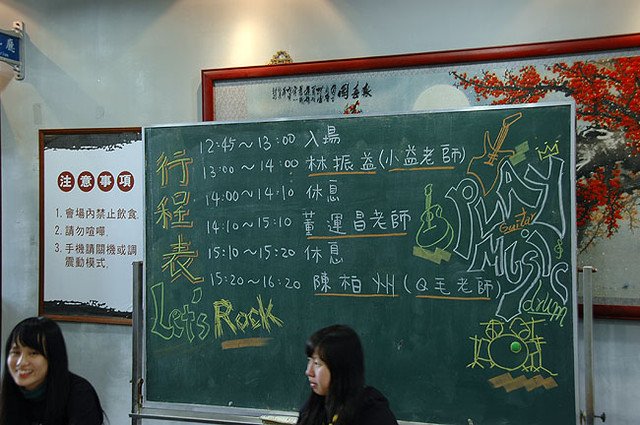 注意事項
1. 會場內禁止飲食.
2. 請勿喧嘩.
3. 手機請關機或調
震動模式.
行程表
12:45～13:00 入場
13:00～14:00 林振益(小益老師)
14:00～14:10 休息
14:10～15:10 董運昌老師
15:10～15:20 休息
15:20～16:20 陳柏州(Q毛老師)
Let's Rock
PLAY
Guitar
MUSIC
drum